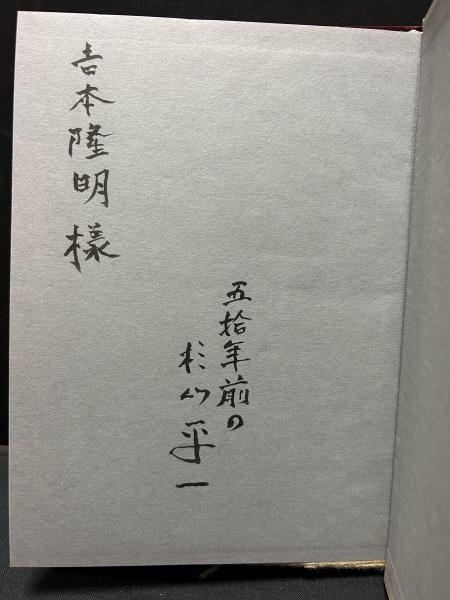 吉本隆明様
五拾年前の
杉山平一